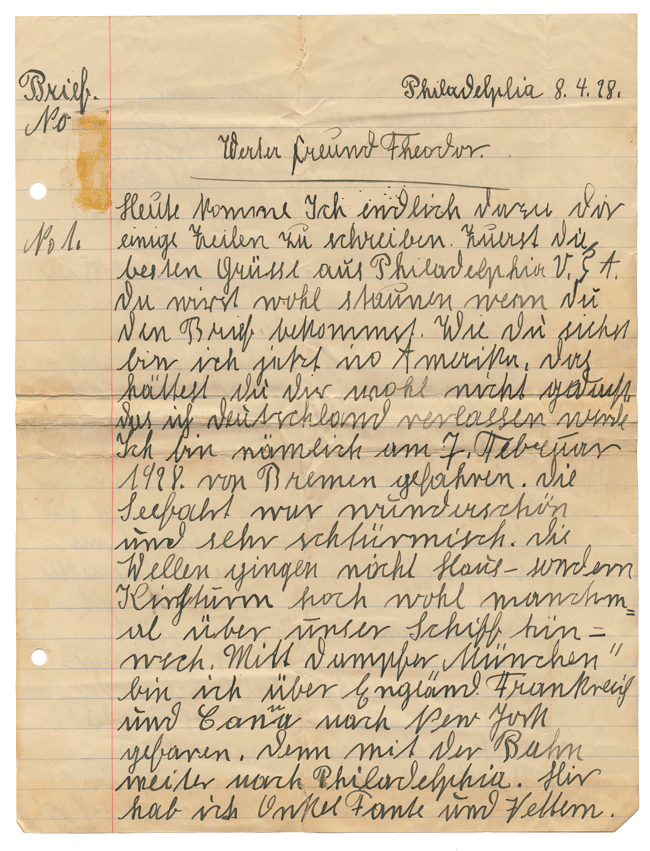 Brief.
No
Philadelphia 8.4.28.
Werter Freund Theodor.
No 1.
Heute komme Ich endlich dazu dir
einige Zeilen zu schreiben. Zuerst die
besten Grüsse aus Philadelphia V. S. A.
du wirst wohl staunen wenn du
den Brief bekommst. Wie du siehst
bin ich jetzt in Amerika, das
hättest du dir wohl nicht gedacht
das ich deutschland verlassen werde
Ich bin nämlich am 7. Februar
1928. von Bremen gefahren. die
Seefahrt war wunderschön
und sehr schtürmisch. die
Wellen gingen nicht Haus- sondern
Kirchturm hoch wohl manchm=
al über unser Schiff hin=
wech. Mitt dampfer „München"
bin ich über England Frankreich
und Cana nach New York
gefaren. denn mit der Bahn
weiter nach Philadelphia. Hir
hab ich Onkel Tante und Vettern.